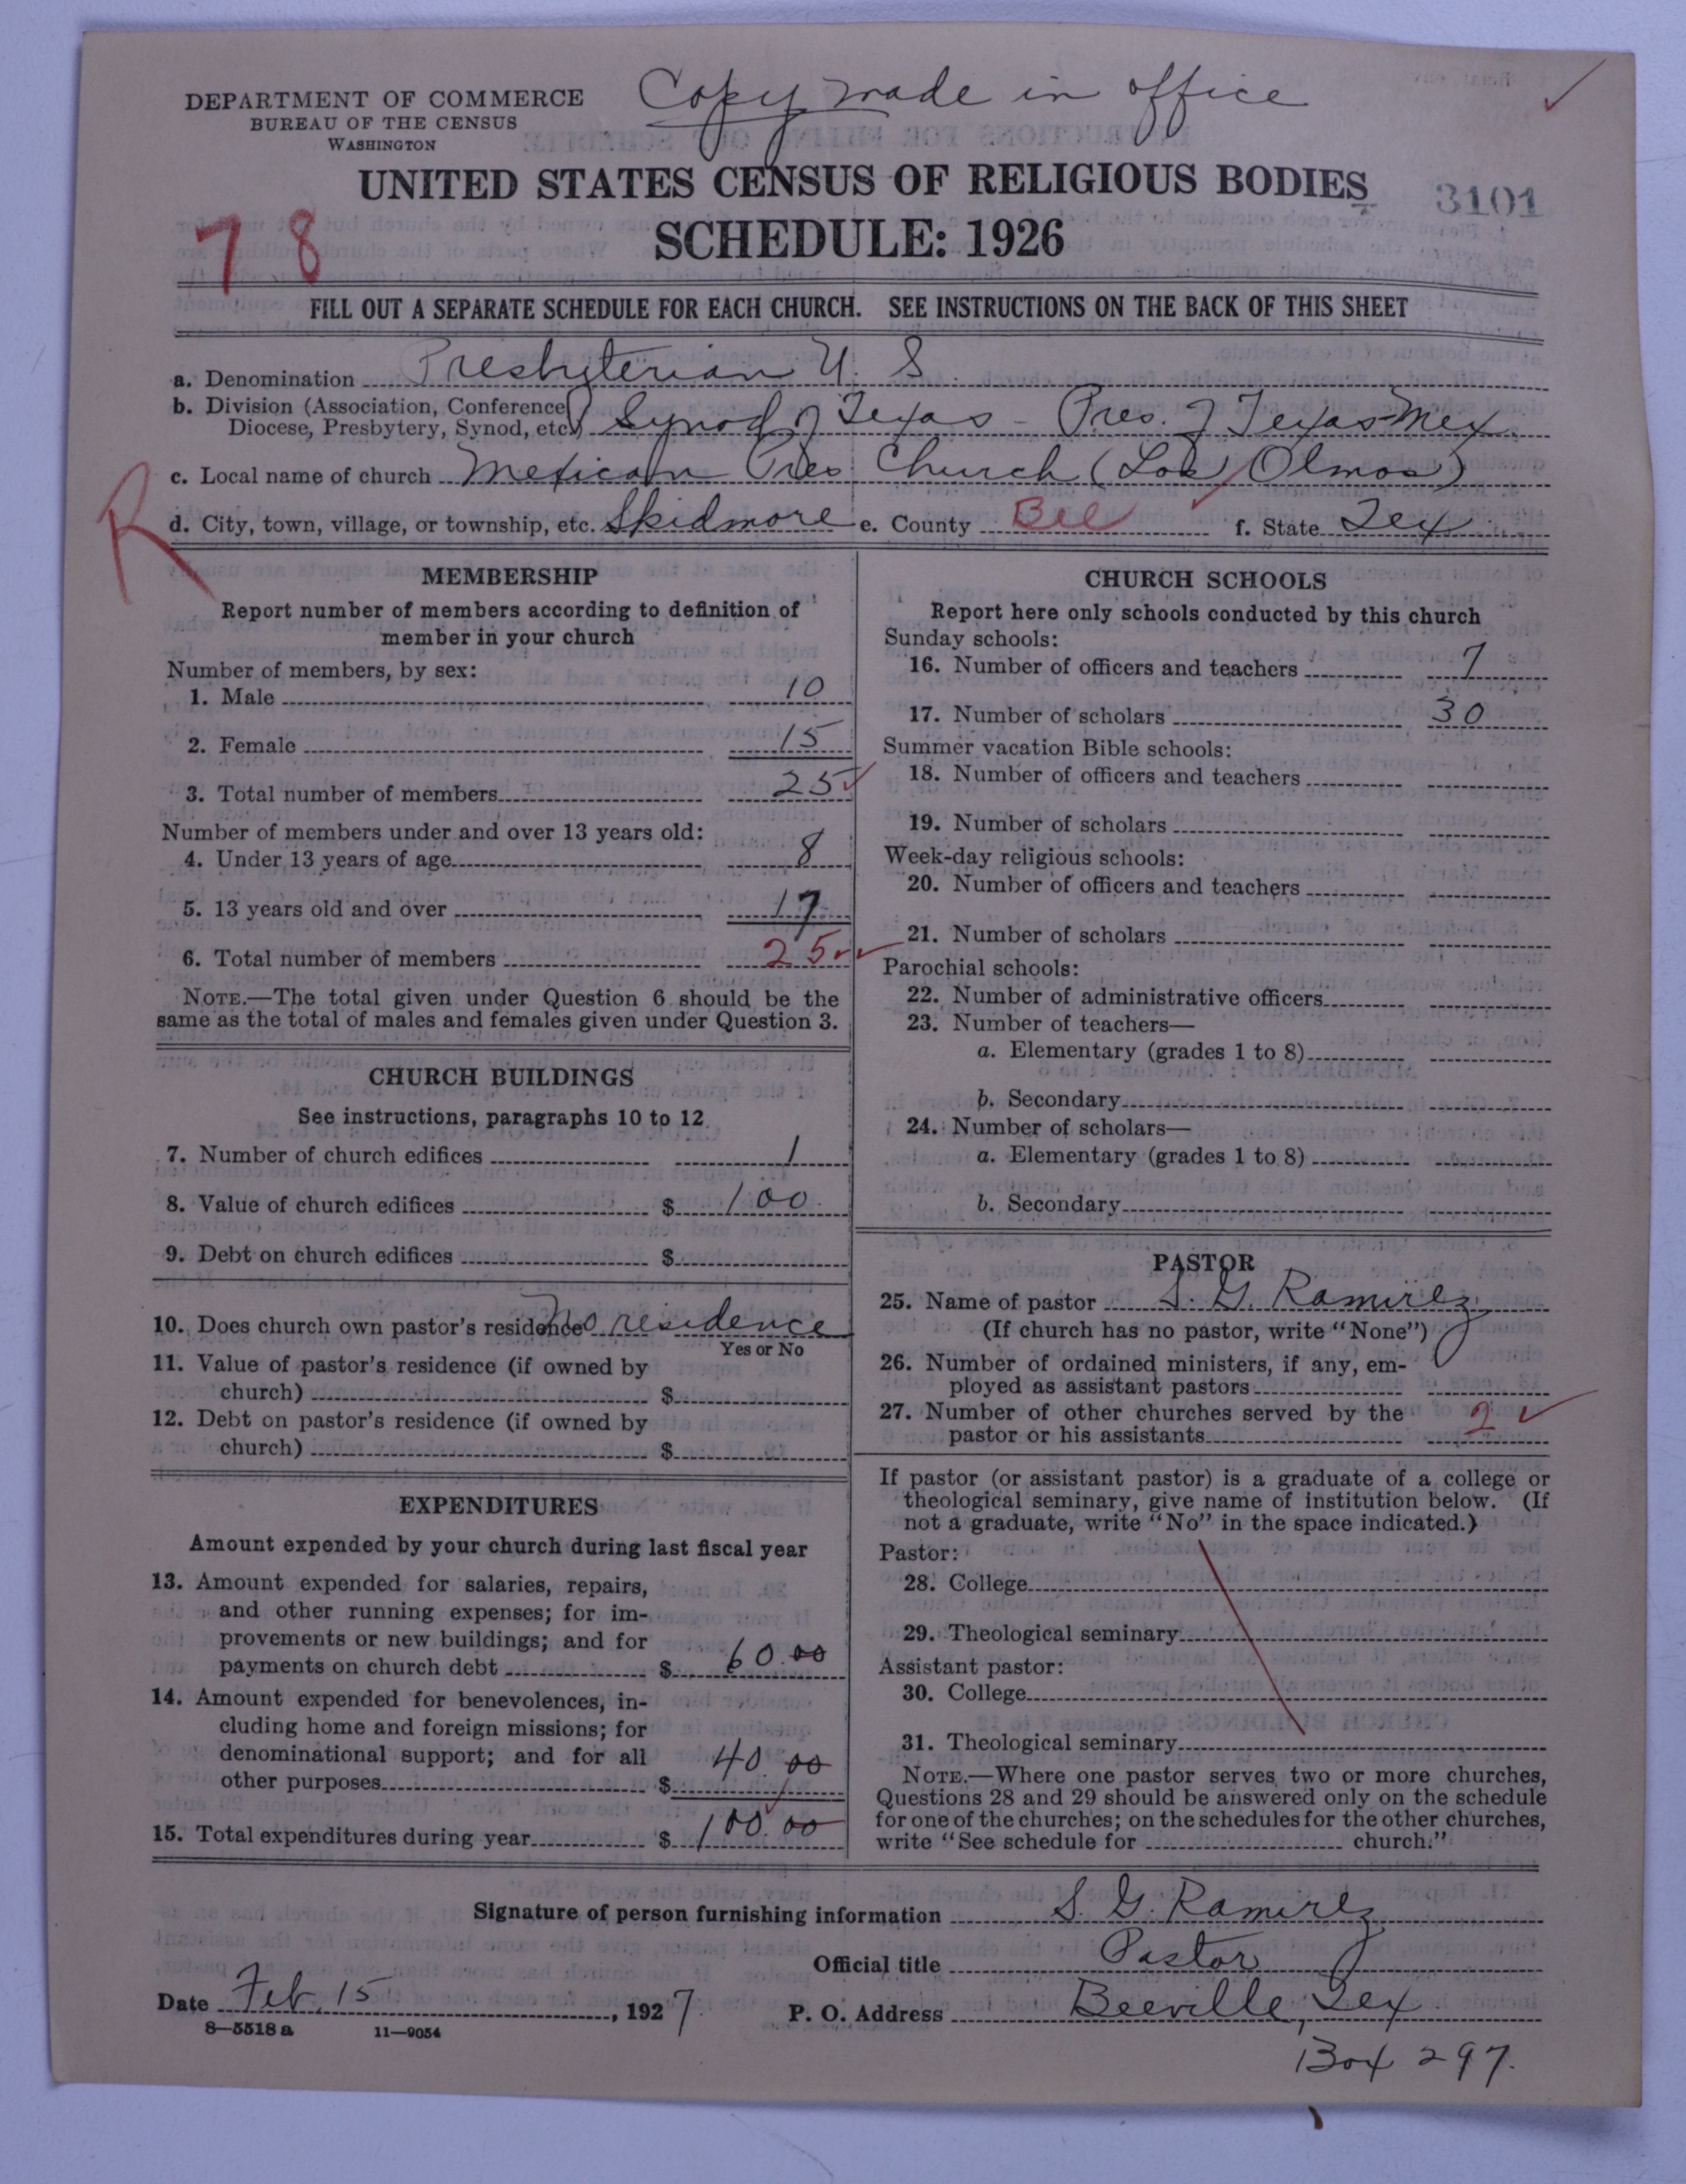 Copy made in office
DEPARTMENT OF COMMERCE
BUREAU OF THE CENSUS
WASHINGTON
UNITED STATES CENSUS OF RELIGIOUS BODIES
3101
78
SCHEDULE: 1926
FILL OUT A SEPARATE SCHEDULE FOR EACH CHURCH. SEE INSTRUCTIONS ON THE BACK OF THIS SHEET
a. Denomination Presbyterian U. S.
b. Division (Association, Conference,
Diocese, Presbytery, Synod, etc.) Synod of Texas - Pres. of Texas-Mex.
c. Local name of church Mexican Pres. Church (Los Olmos)
R
d. City, town, village, or township, etc. Skidmore e. County Bee f. State Tex.
MEMBERSHIP
Report number of members according to definition of
member in your church
Number of members, by sex:
1. Male 10
2. Female 15
3. Total number of members 25
Number of members under and over 13 years old:
4. Under 13 years of age 8
5. 13 years old and over 17
6. Total number of members 25
NOTE.—The total given under Question 6 should be the
same as the total of males and females given under Question 3.
CHURCH BUILDINGS
See instructions, paragraphs 10 to 12
7. Number of church edifices 1
8. Value of church edifices $ 100
9. Debt on church edifices $
10. Does church own pastor's residence No residence
Yes or No
11. Value of pastor's residence (if owned by
church) $
12. Debt on pastor's residence (if owned by
church) $
EXPENDITURES
Amount expended by your church during last fiscal year
13. Amount expended for salaries, repairs,
and other running expenses; for im-
provements or new buildings; and for
payments on church debt $ 60.00
14. Amount expended for benevolences, in-
cluding home and foreign missions; for
denominational support; and for all
other purposes $ 40.00
15. Total expenditures during year $ 100.00
CHURCH SCHOOLS
Report here only schools conducted by this church
Sunday schools:
16. Number of officers and teachers 7
17. Number of scholars 30
Summer vacation Bible schools:
18. Number of officers and teachers
19. Number of scholars
Week-day religious schools:
20. Number of officers and teachers
21. Number of scholars
Parochial schools:
22. Number of administrative officers
23. Number of teachers—
a. Elementary (grades 1 to 8)
b. Secondary
24. Number of scholars—
a. Elementary (grades 1 to 8)
b. Secondary
PASTOR
25. Name of pastor S. G. Ramirez
(If church has no pastor, write "None")
26. Number of ordained ministers, if any, em-
ployed as assistant pastors
27. Number of other churches served by the
pastor or his assistants 2
If pastor (or assistant pastor) is a graduate of a college or
theological seminary, give name of institution below. (If
not a graduate, write "No" in the space indicated.)
Pastor:
28. College
29. Theological seminary
Assistant pastor:
30. College
31. Theological seminary
NOTE.—Where one pastor serves two or more churches,
Questions 28 and 29 should be answered only on the schedule
for one of the churches; on the schedules for the other churches,
write "See schedule for church."
Signature of person furnishing information S. G. Ramirez
Official title Pastor
Date Feb. 15, 1927 P. O. Address Beeville, Tex
8—5518 a 11—9054
Box 297.